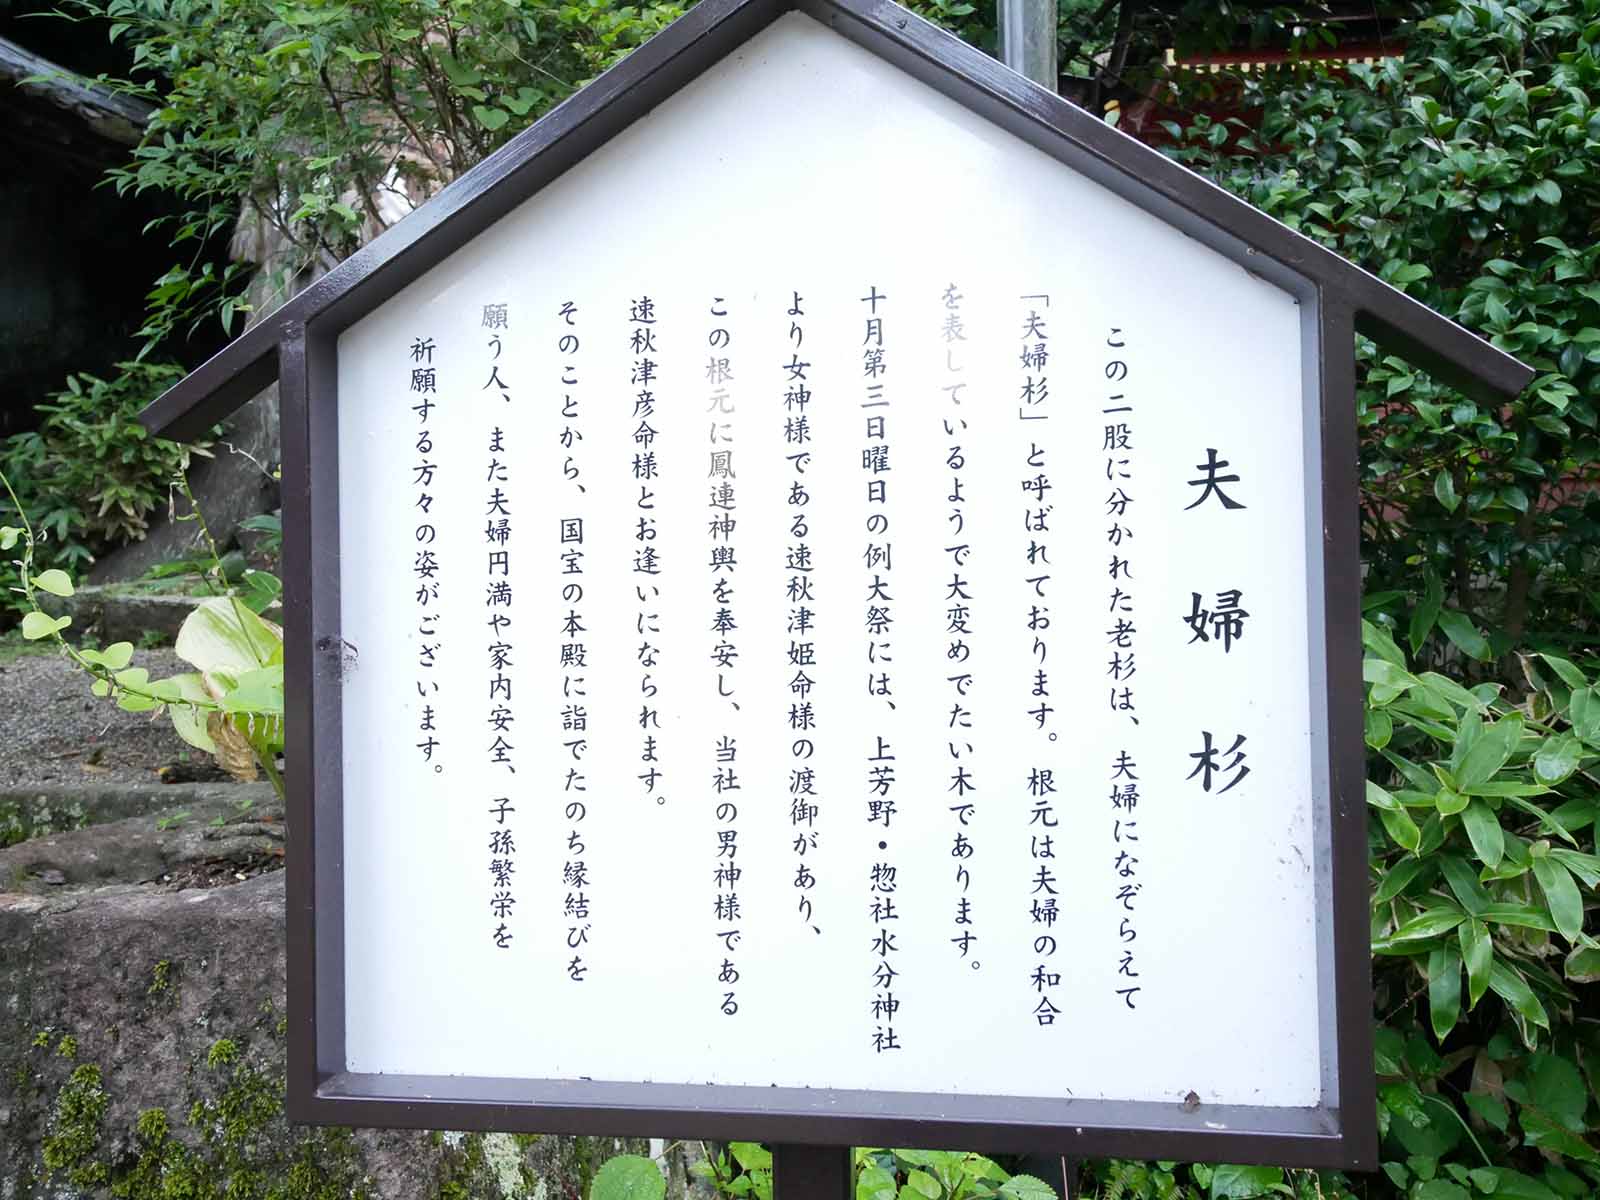 夫婦杉
この二股に分かれた老杉は、夫婦になぞらえて
「夫婦杉」と呼ばれております。根元は夫婦の和合
を表しているようで大変めでたい木であります。
十月第三日曜日の例大祭には、上芳野・惣社水分神社
より女神様である速秋津姫命様の渡御があり、
この根元に鳳連神輿を奉安し、当社の男神様である
速秋津彦命様とお逢いになられます。
そのことから、国宝の本殿に詣でたのち縁結びを
願う人、また夫婦円満や家内安全、子孫繁栄を
祈願する方々の姿がございます。